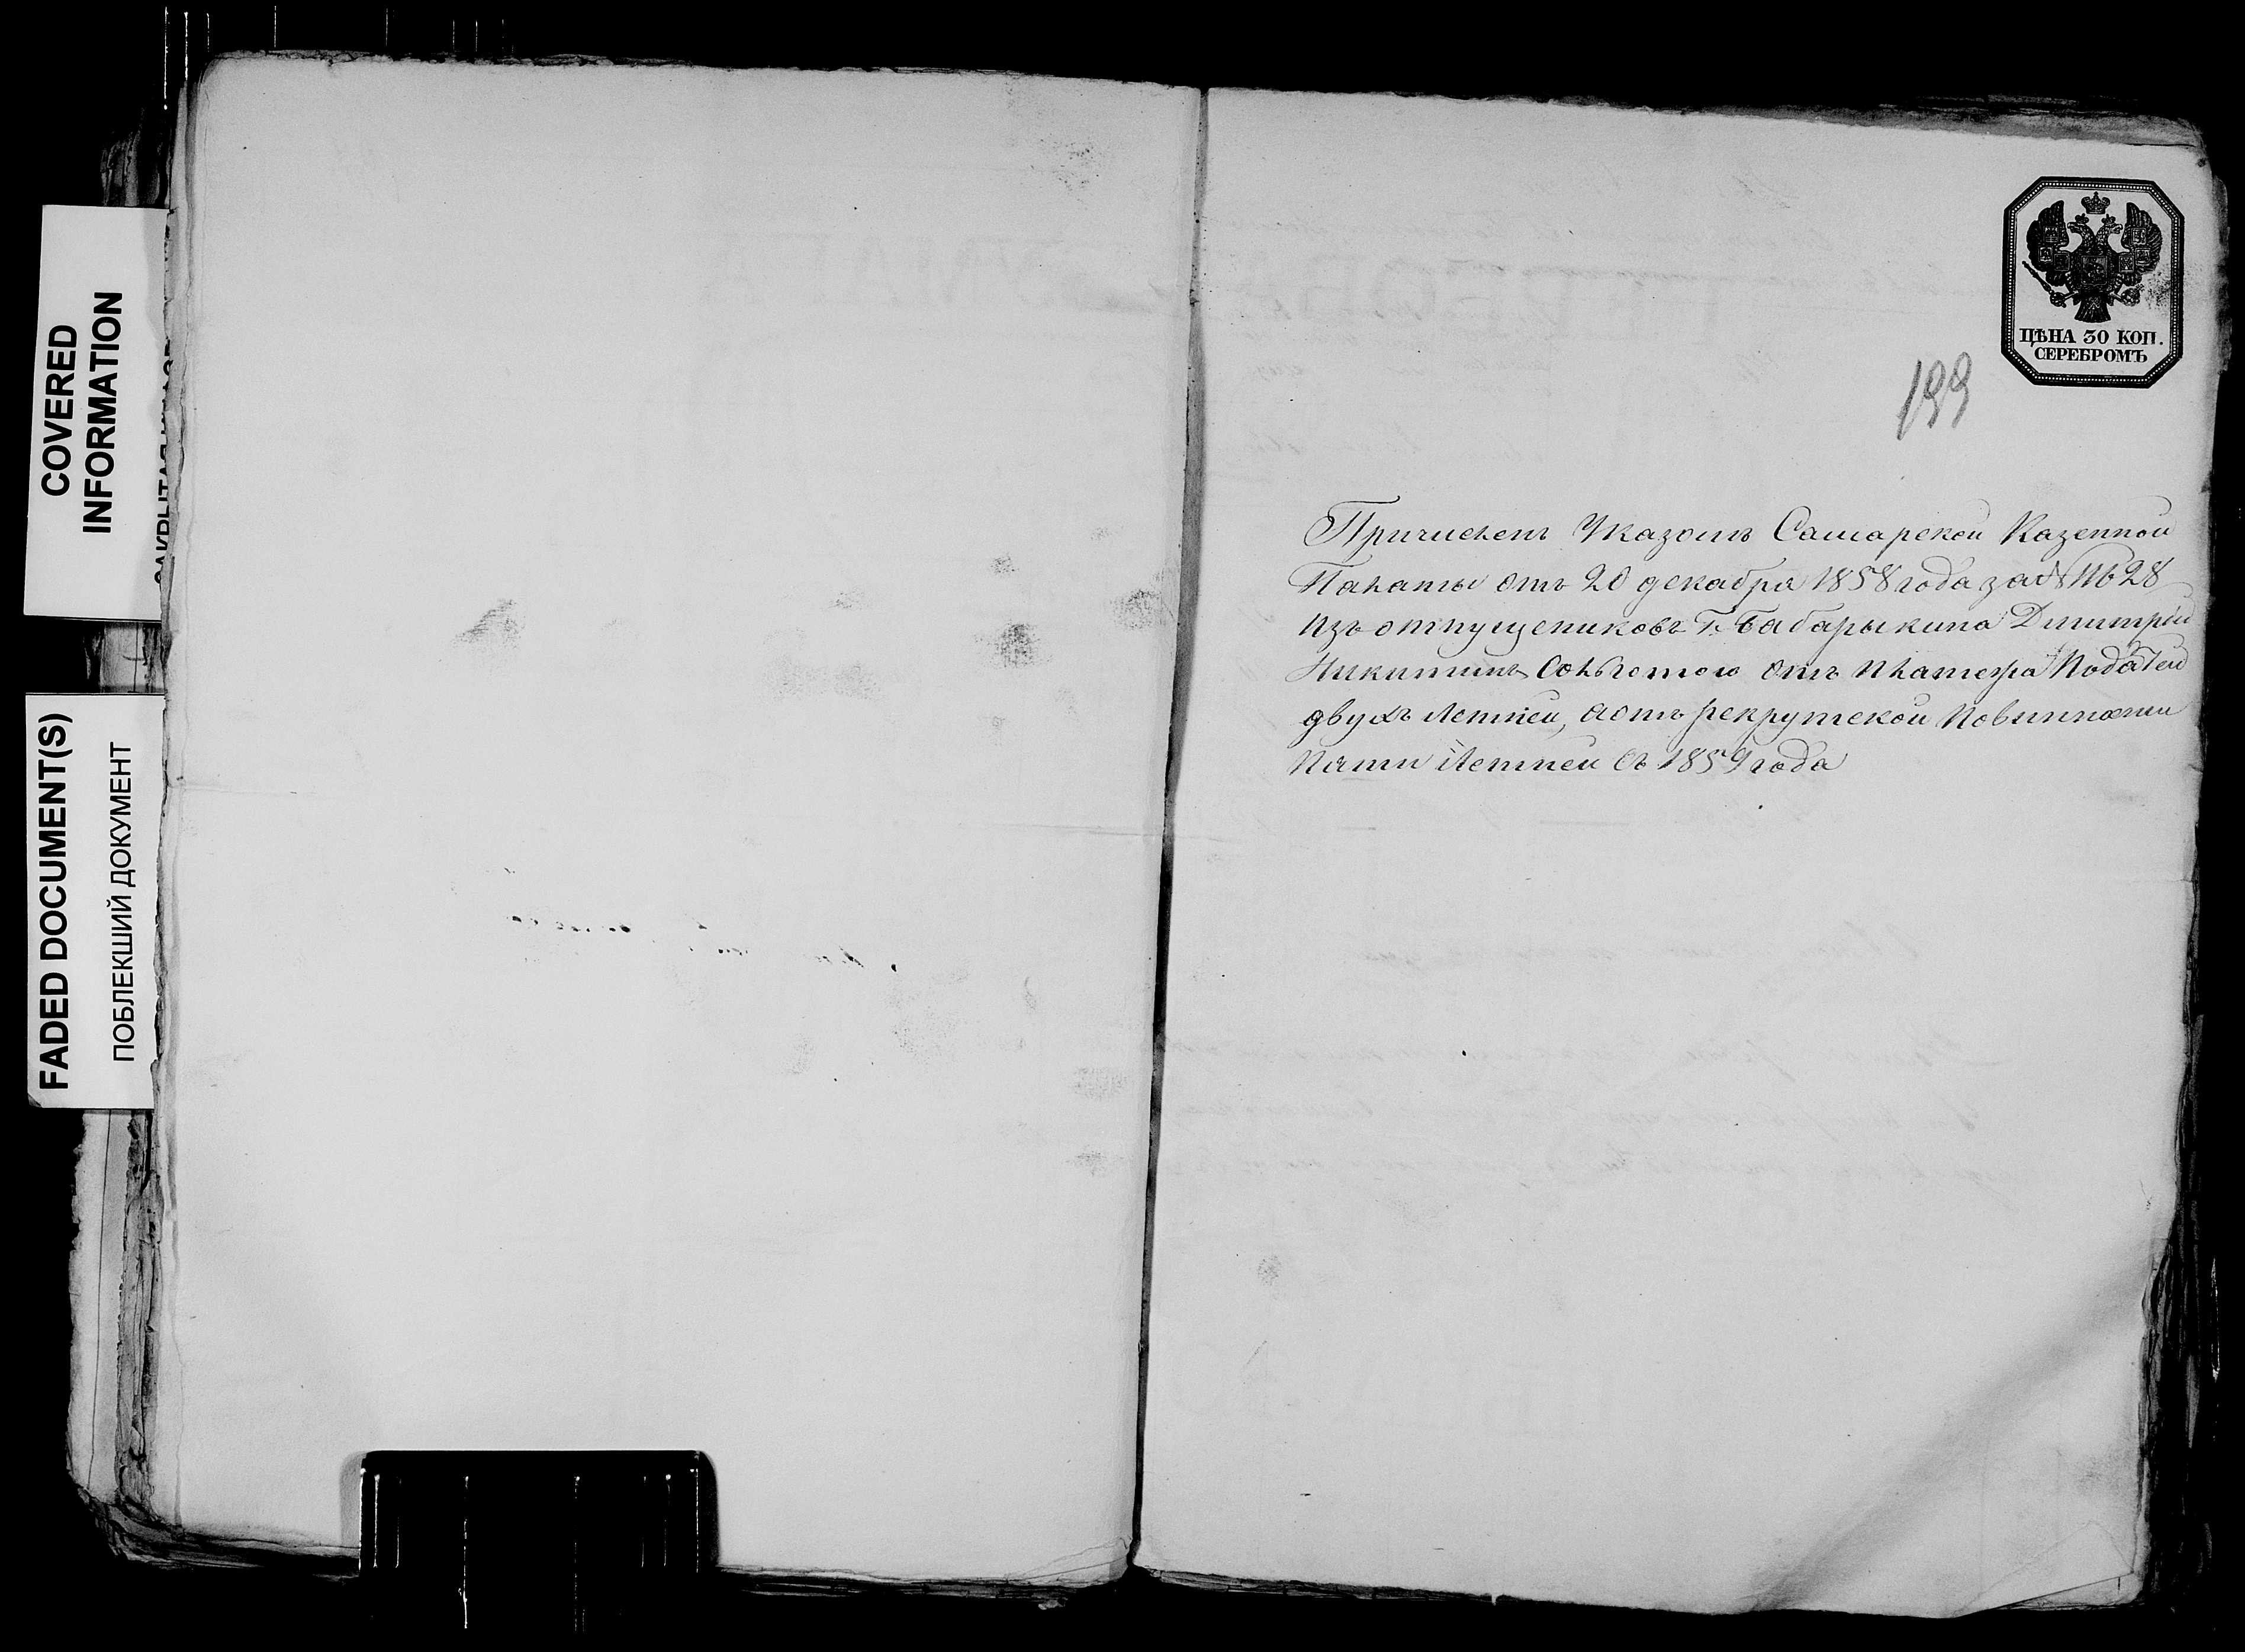 COVERED
INFORMATION
FADED DOCUMENT(S)
ПОБЛЕКШИЙ ДОКУМЕНТ
ЦѢНА 30 КОП.
СЕРЕБРОМЪ
199
Причисленъ Указомъ Самарской Казенной
Палаты отъ 20 декабря 1858 года за №
изъ отпущениковъ Г. Бабарыкина Димитрій
Никитинъ Сольготою отъ платежа Податей
двухъ Летней, аотъ рекрутской Повинности
Пяти Летней Съ 1859 года